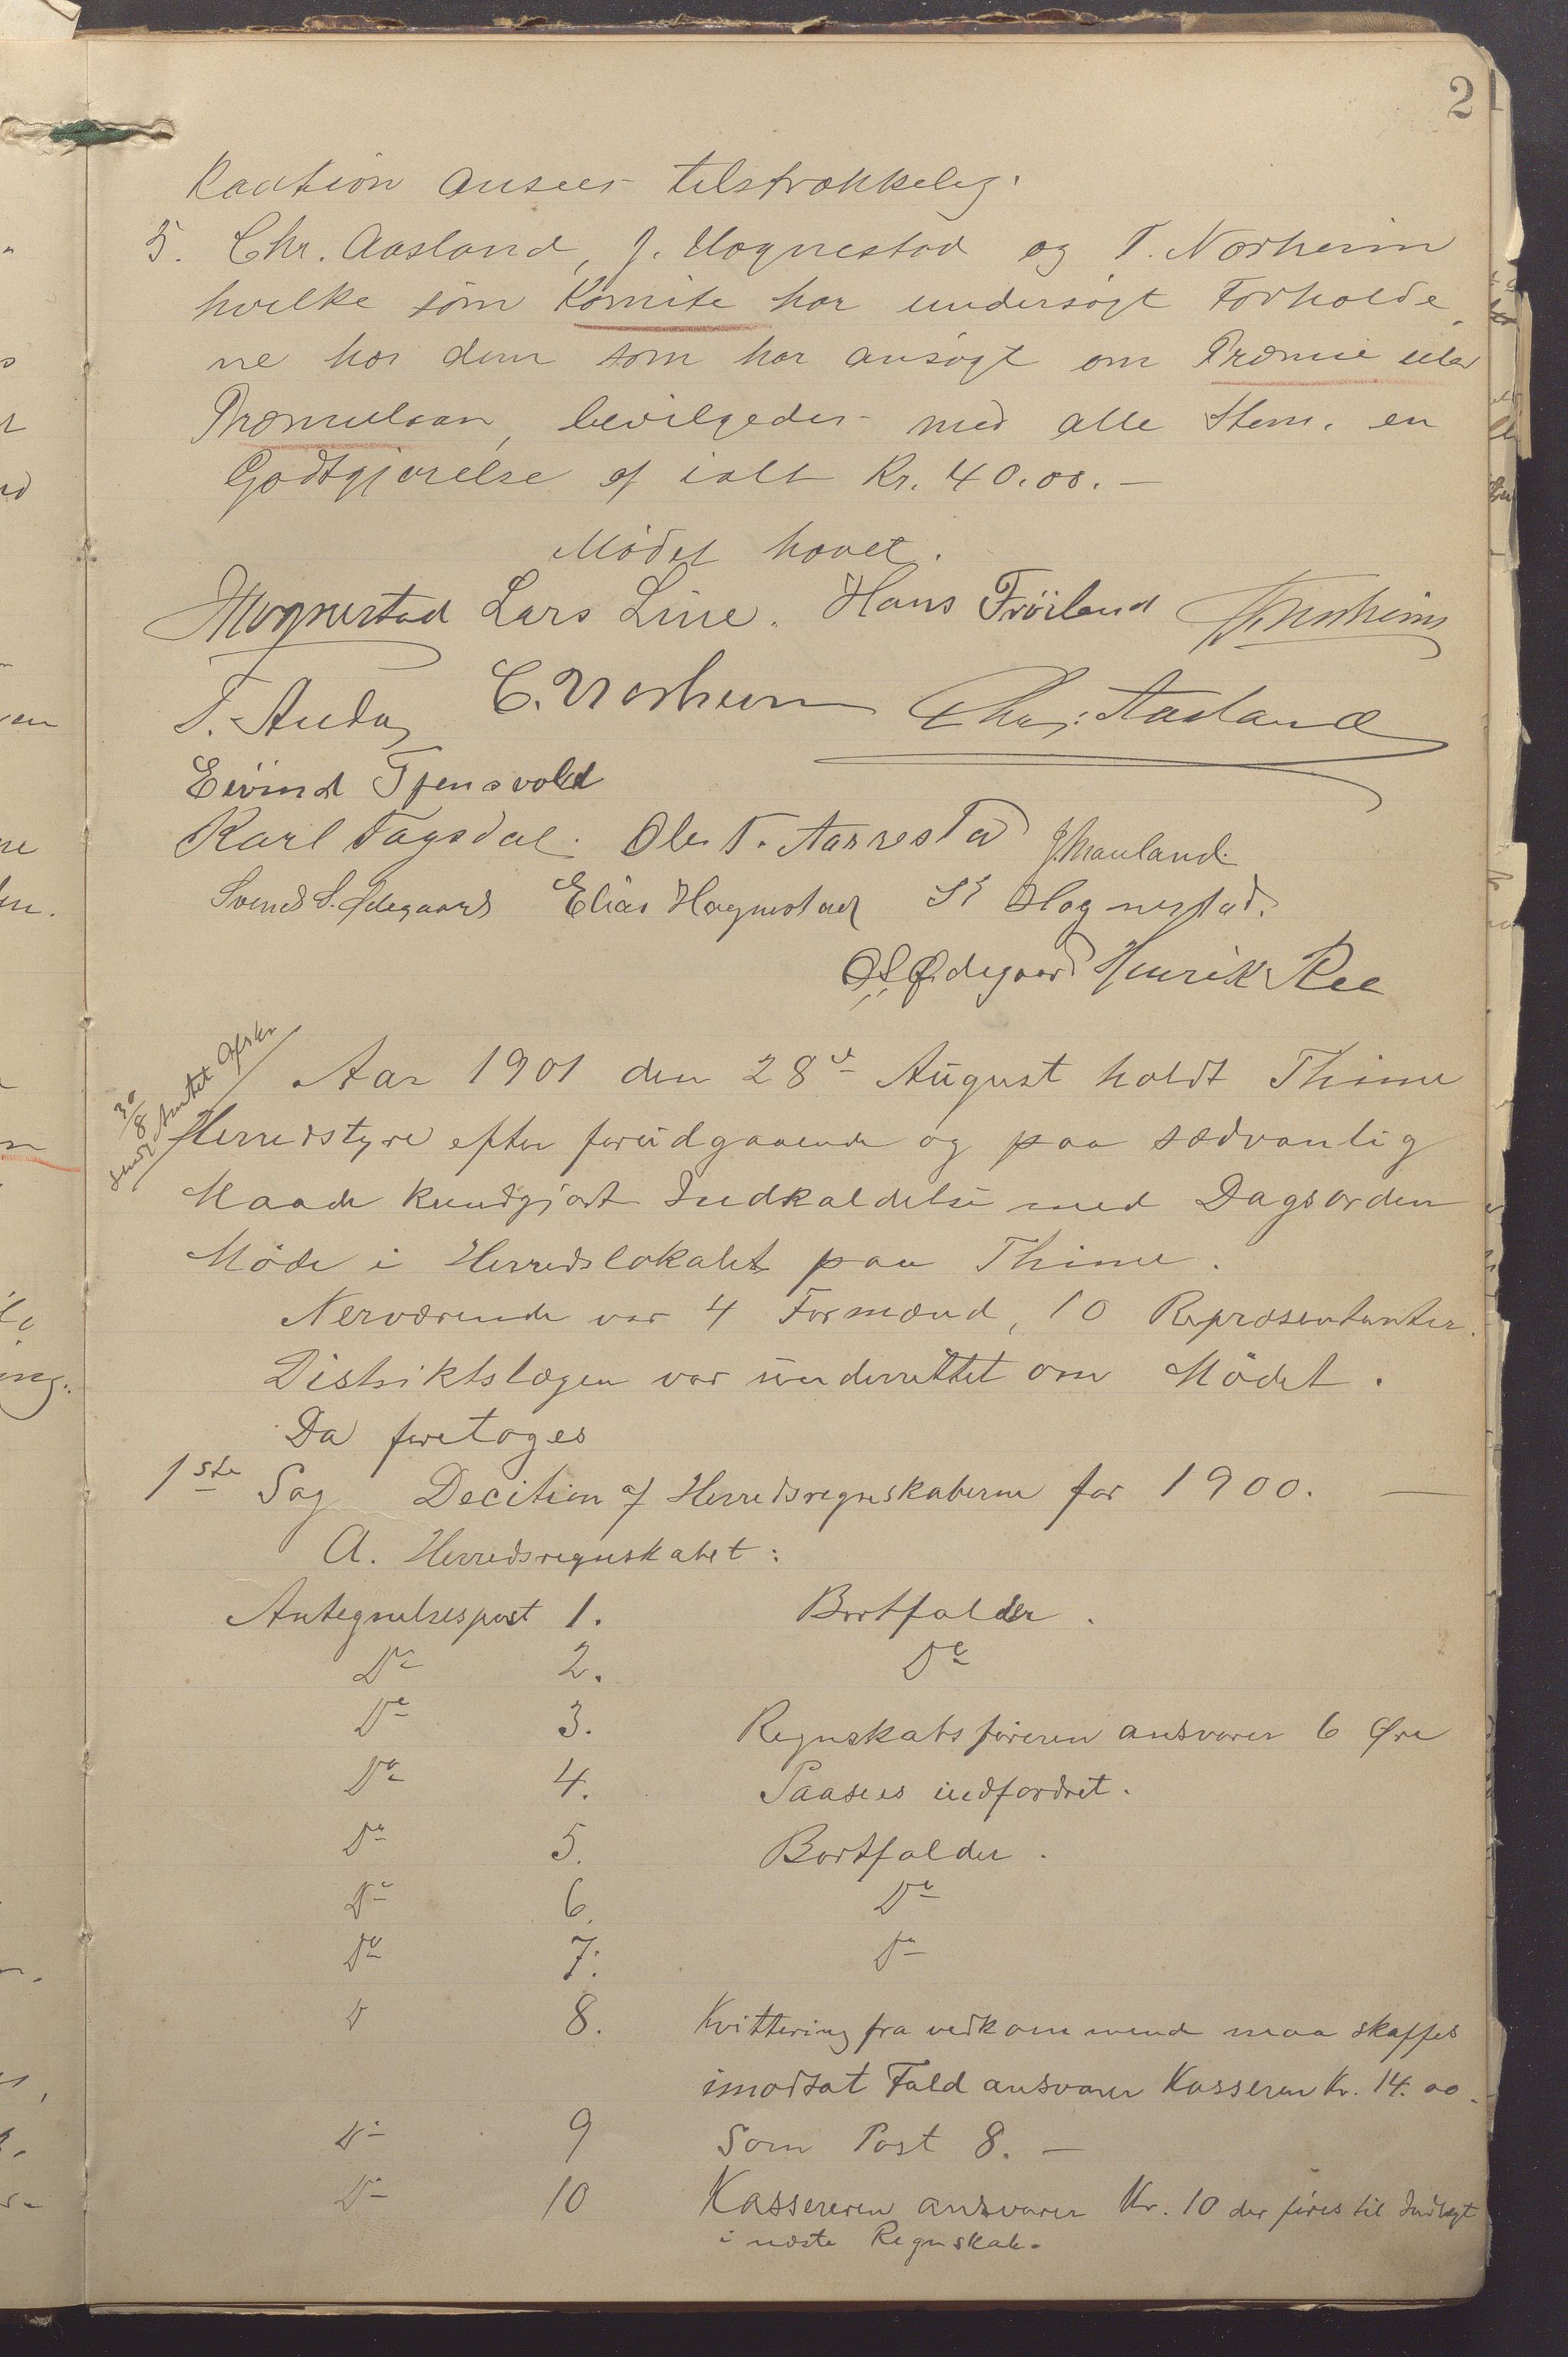 2
Kaution ansees tilstrækkelig.
5. Chr. Aasland, J. Hognestad og T. Norheim
hvilke som Komite har undersøgt Forholde
ne hos dem som har ansøgt om Præmie eller
Præmielaan, bevilgedes med alle Stem. en
Godtgjørelse af ialt Kr. 40.00. —
Mødet hævet.
JHognestad Lars Line. Hans Fröiland T. Norheim
T. Auda C. Norheim Chr. Aasland
Eivind Tjensvold
Karl Fagsdal. Ole T. Aarrestad J. Mauland.
Svend S. Ødegaard Elias Hognestad Hognestad.
O S Ødegaard Henrik Ree
30/8 sendt Amtet Afskr
Aar 1901 den 28de August holdt Thime
Herredstyre efter forudgaaende og paa sædvanlig
Maade kundgjort Indkaldelse med Dagsorden
Möde i Herredslokalet paa Thime.
Nerværende var 4 Formænd, 10 Repræsentanter.
Distriktslægen var underrettet om Mödet.
Da foretoges
1ste Sag Decition af Herredsregnskaberne for 1900. —
A. Herredsregnskabet:
Antegnelsespost 1. Bortfalder.
Do 2. Do
Do 3. Regnskabsføreren ansvarer 6 Øre
Do 4. Paasees indfordret.
Do 5. Bortfalder.
Do 6. Do
Do 7. Do
D 8. Kvittering fra vedkommende maa skaffes
imodsat Fald ansvarer Kasseren Kr. 14.00.
Do 9 Som Post 8. —
Do 10 Kassereren ansvarer Kr. 10 der føres til Indtægt
i næste Regnskab.